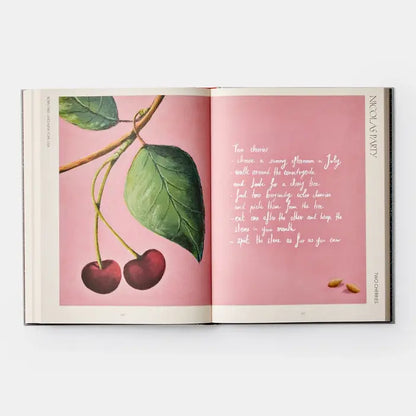 NICOLAS PARTY
Two cherries
- choose a sunny afternoon in July
- walk around the countryside
and look for a cherry tree
- find two burgundy color cherries
and pick them from the tree
- eat one after the other and keep the
stones in your mouth
- spit the stones as far as you can
TWO CHERRIES